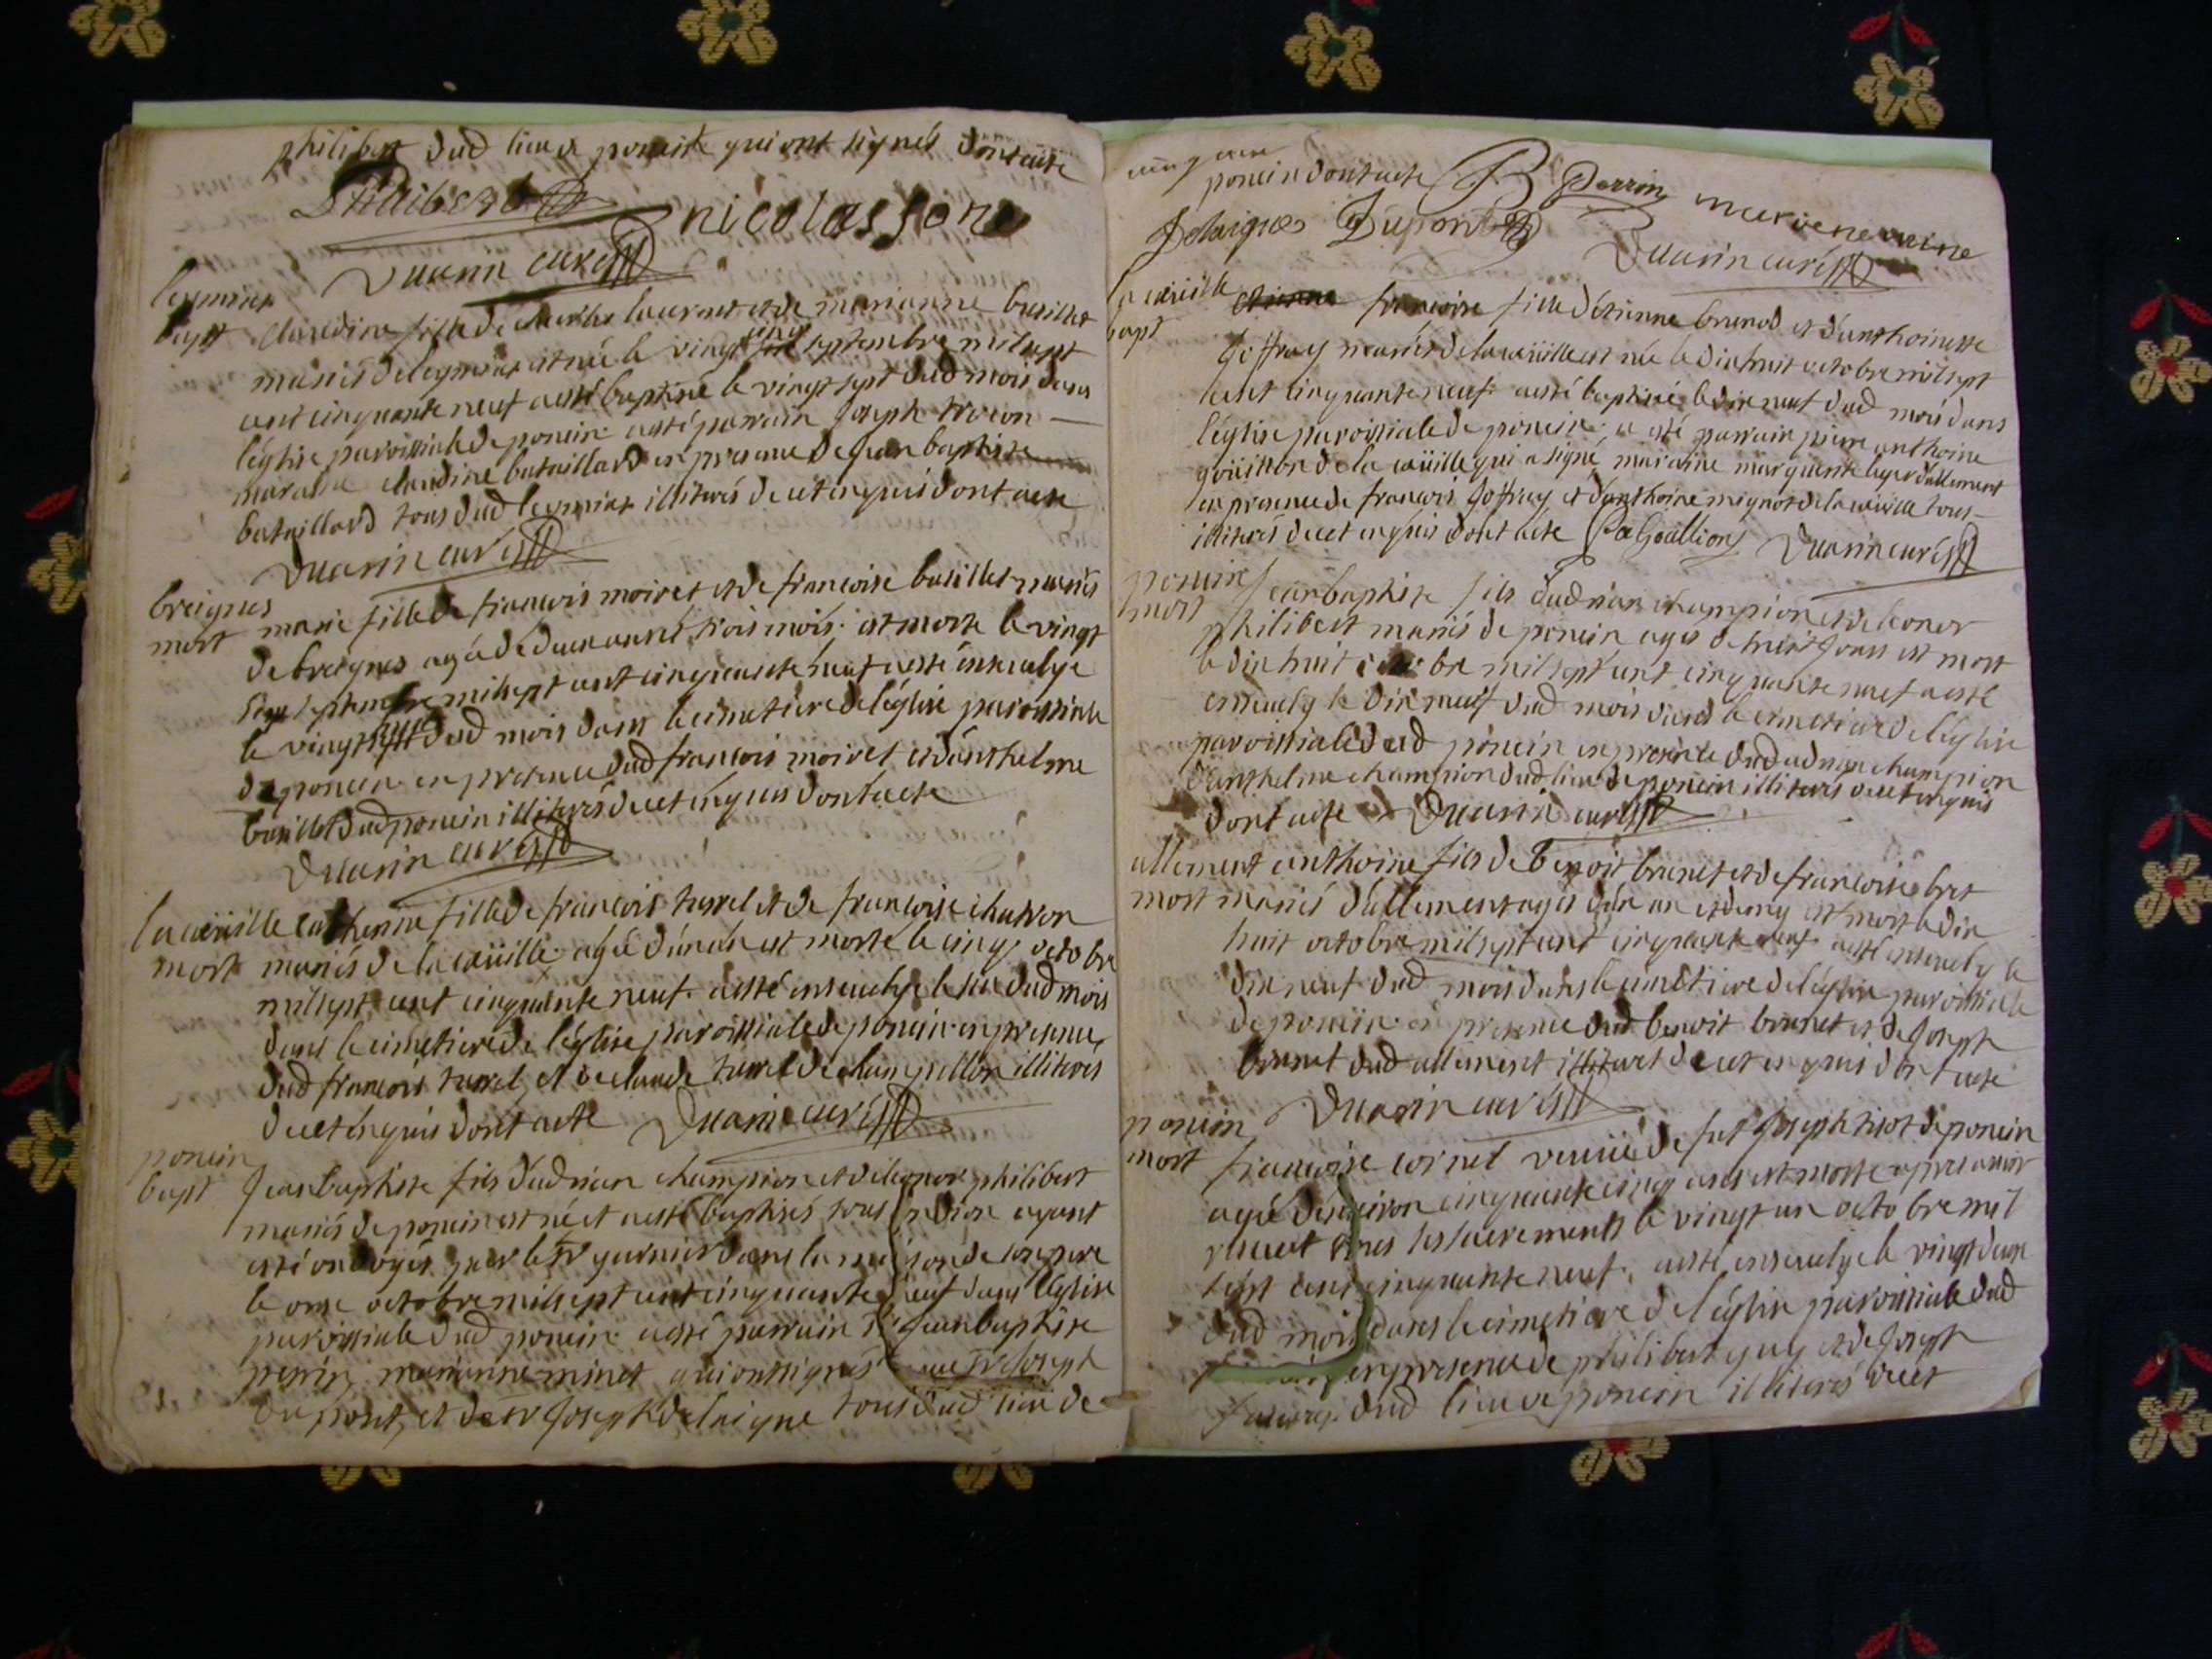 philibert dud lieu de poncin qui ont signés dont acte
Philibert nicolas fore
Duarin curé
leymiat
bapt claudine fille de charles laurent et de marianne busillet
mariés de leymiat est née le vingt cinq septembre mil sept
cent cinquante neuf a esté baptisé le vingt sept dud mois dans
léglise paroissiale de poncin a esté parrain joseph
maraine claudine bataillard en presence de jean baptiste
bataillard tous dud leymiat illiterés de cet enquis dont acte
Duarin curé
breignes
mort marie fille de francois moiret et de francoise busillet mariés
de breignes agée de deux année trois mois est morte le vingt
septembre mil sept cent cinquante neuf a esté ensevelye
le vingt dud mois dans le cimetiere de léglise paroissiale
de poncin en presence dud francois moiret et d'anthelme
busillet dud poncin illiterés de cet enquis dont acte
Duarin curé
la cuëille catherine fille de francois tarrel et de francoise
mort mariés de la cuëille agée d'un an est morte le cinq octobre
mil sept cent cinquante neuf a esté ensevelye le six dud mois
dans le cimetiere de léglise paroissiale de poncin en presence
dud francois tarrel et de claude tarrel de illiterés
de cet enquis dont acte Duarin curé
poncin
bapt jean baptiste fils d'adrian champion et de leonor philibert
mariés de poncin est né et a esté baptisés sous condition ayant
esté ondoyés par le sr garnier dans la maison de son pere
le onze octobre mil sept cent cinquante neuf dans léglise
paroissiale dud poncin a esté parrain sr jean baptiste
perrin marianne minet qui ont signés avec sr joseph
dupont, et de sr joseph delaigue tous dud lieu de
poncin dont acte B Perrin
Delaigue Dupont Duarin curé
la cuëille
bapt francoise fille d'étienne brunod et d'anthoinette
goffray mariés de la cuëille est née le dix huit octobre mil sept
cent cinquante neuf a esté baptisé le dix neuf dud mois dans
léglise paroissiale de poncin a esté parrain pierre anthoine
de la cuëille qui a signé maraine marguerite d'allement
en presence de francois goffray et d'anthoine mignot de la cuëille tous
illiterés de cet enquis dont acte Duarin curé
poncin
mort jean baptiste fils d'adrian champion et de leonor
philibert mariés de poncin agés de huit jours est mort
le dix huit octobre mil sept cent cinquante neuf a esté
ensevely le dix neuf dud mois dans le cimetiere de léglise
paroissiale dud poncin en presence dud adrian champion
d'anthelme champion dud lieu de poncin illiterés de cet enquis
dont acte Duarin curé
allement anthoine fils de benoit brunet et de francoise bret
mort mariés d'allement agés d'un an et demy est mort le dix
huit octobre mil sept cent cinquante neuf a esté ensevely le
dix neuf dud mois dans le cimetiere de léglise paroissiale
de poncin en presence dud benoit brunet et de joseph
brunet dud allement illiterés de cet enquis dont acte
Duarin curé
poncin
mort francoise cornet veuve de fut joseph tirot de poncin
agée d'environ cinquante cinq ans est morte apres avoir
receut tous les sacrements le vingt un octobre mil
sept cent cinquante neuf, a esté ensevelye le vingt deux
dud mois dans le cimetiere de léglise paroissiale dud
en presence de philibert guy et de joseph
dud lieu de poncin illiterés de cet